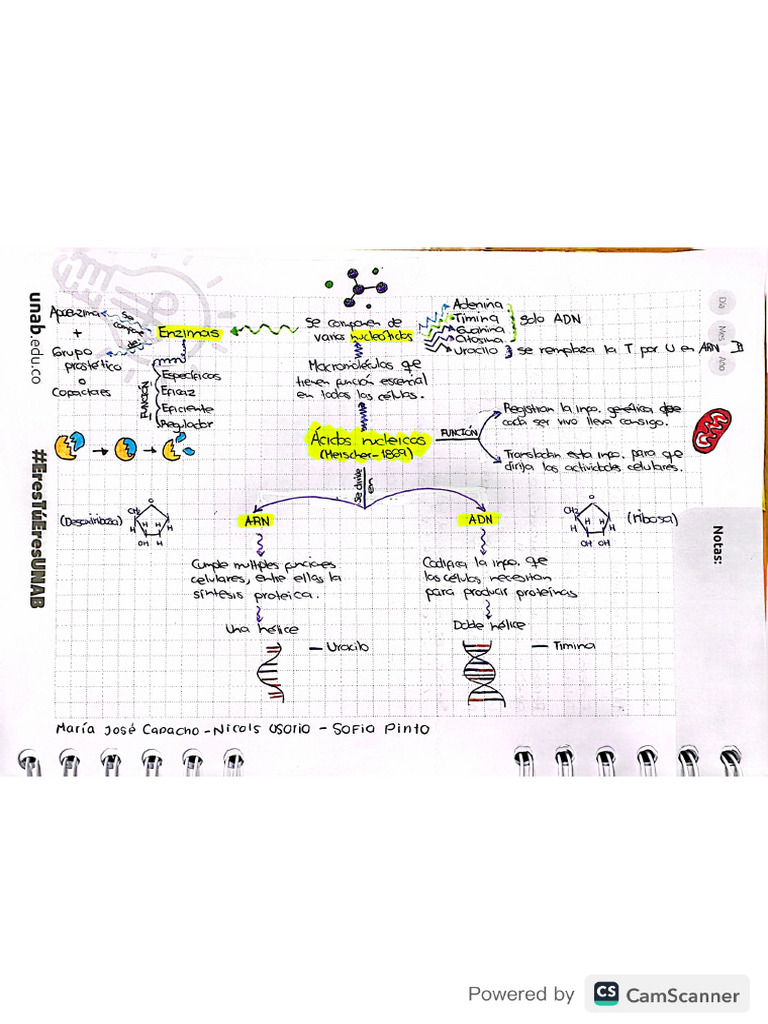 Adenina
Timina
Guanina
Citosina
Uracilo
Solo ADN
se remplaza la T por U en ARN
Se componen de
varios nucleótidos
Enzimas
Se
compone
de
Apoenzima
+
Grupo
prostético
o
Cofactores
FUNCIÓN
Específicos
Eficaz
Eficiente
Regulador
Macromoléculas que
tienen función esencial
en todas las células.
Ácidos nucleicos
(Meischer-1869)
FUNCIÓN
Registran la info. genética que
cada ser vivo lleva consigo.
Transladan esta info. para que
dirija las actividades celulares.
Se divide
en
(Desoxirribosa)
O
CH2
H H H H
OH H
ARN
ADN
O
CH2
H H H H
OH OH
(ribosa)
Cumple multiples funciones
celulares, entre ellas la
síntesis proteica.
Codifica la info. que
las células necesitan
para producir proteínas
Una hélice
Doble hélice
Uracilo
Timina
María José Capacho - Nicols Osorio - Sofia Pinto
unab.edu.co
#EresTúEresUNAB
Día
Mes
Año
Notas:
Powered by CS CamScanner